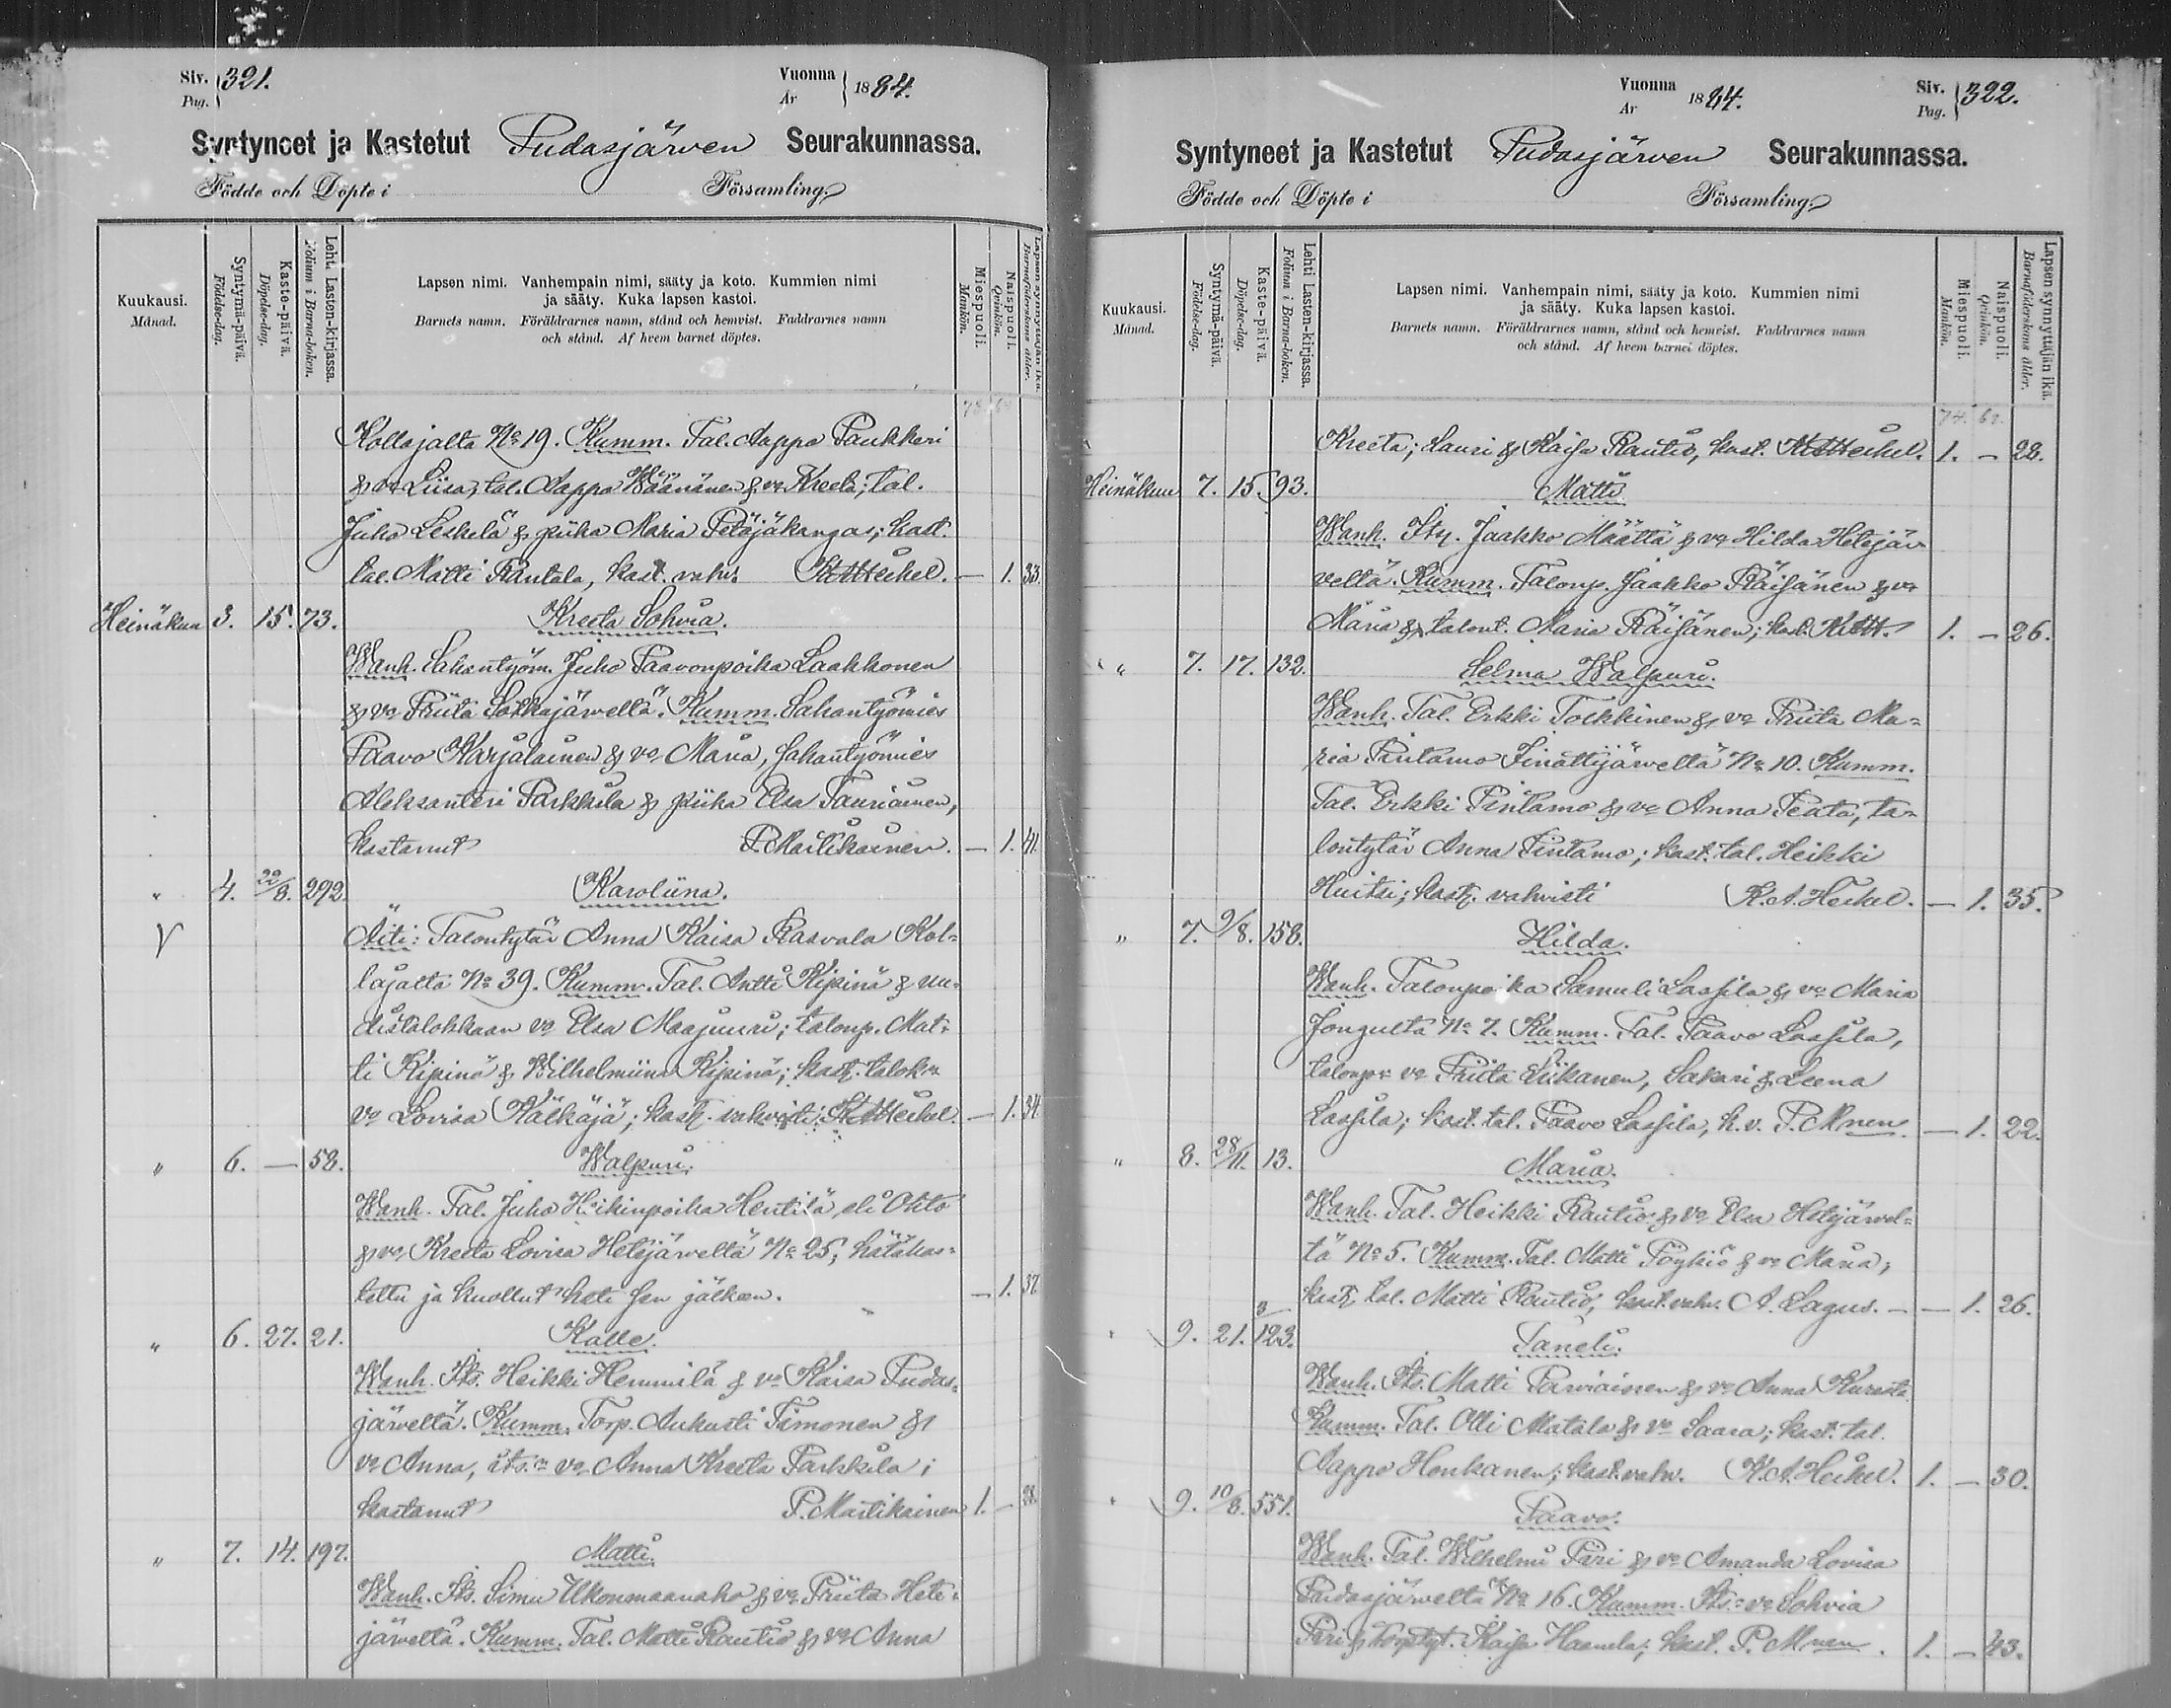 Siv. 321.
Pag.
Vuonna
År 1884.
Syntyneet ja Kastetut Pudasjärven Seurakunnassa.
Födde och Döpte i Församling.
Kuukausi.
Månad.
Syntymä-päivä.
Födelse-dag.
Kaste-päivä.
Döpelse-dag.
Lehti Lasten-kirjassa.
Folium i Barna-boken.
Lapsen nimi. Vanhempain nimi, sääty ja koto. Kummien nimi
ja sääty. Kuka lapsen kastoi.
Barnets namn. Föräldrarnes namn, stånd och hemvist. Faddrarnes namn
och stånd. Af hvem barnet döptes.
Miespuoli.
Mankön.
Naispuoli.
Qvinkön.
Lapsen synnyttäjän ikä.
Barnaföderskans ålder.
Kollajalta No 19. Kumm. Tal. Aappo Paukkeri
& vo Liisa, tal. Aappo Väänänen & vo Kreeta; tal.
Juho Leskelä & piika Maria Petäjäkangas; kast.
tal. Matti Rantala, kast. vahv. K.A.Heikel. — 1. 33.
Heinäkuu 3. 15. 73. Kreeta Sohvia.
Wanh. Sahantyöm. Juho Paavonpoika Laakkonen
& vo Priita Sotkajärveltä. Kumm. Sahantyömies
Paavo Karjalainen & vo Maria, sahantyömies
Aleksanteri Parkkila & piika Elsa Tauriainen,
kastanut P. Martikainen. — 1. 41.
" 4. 22/8. 292. Karoliina.
V Äiti: Talontytär Anna Kaisa Rasvala Kol-
lajalta No 39. Kumm. Tal. Antti Kipinä & uu-
distalokkaan vo Elsa Maajuuri; talonp. Mat-
ti Kipinä & Wilhelmiina Kipinä; kast. talok:n
vo Lovisa Kälkäjä; kast. vahvisti: K.A.Heikel. — 1. 34.
" 6. — 58. Walpuri.
Wanh. Tal. Juho Heikinpoika Hentilä, eli Ohto
& vo Kreeta Lovisa Hetejärveltä No 25, hätäkas-
tettu ja kuollut heti sen jälkeen. — 1. 37.
" 6. 27. 21. Kalle.
Wanh. Its. Heikki Hemmilä & vo Kaisa Pudas-
järveltä. Kumm. Torp. Aukusti Timonen &
vo Anna, its:n vo Anna Kreeta Parkkila;
kastanut P. Martikainen 1. — 28.
" 7. 14. 197. Matti.
Wanh. Its. Simu Ukonmaanaho & vo Priita Hete-
järveltä. Kumm. Tal. Matti Rautio & vo Anna
Vuonna
År 1884.
Siv. 322.
Pag.
Syntyneet ja Kastetut Pudasjärven Seurakunnassa.
Födde och Döpte i Församling.
Kuukausi.
Månad.
Syntymä-päivä.
Födelse-dag.
Kaste-päivä.
Döpelse-dag.
Lehti Lasten-kirjassa.
Folium i Barna-boken.
Lapsen nimi. Vanhempain nimi, sääty ja koto. Kummien nimi
ja sääty. Kuka lapsen kastoi.
Barnets namn. Föräldrarnes namn, stånd och hemvist. Faddrarnes namn
och stånd. Af hvem barnet döptes.
Miespuoli.
Mankön.
Naispuoli.
Qvinkön.
Lapsen synnyttäjän ikä.
Barnaföderskans ålder.
74. 62.
Kreeta; Lauri & Kaisa Rautio, kast. K.A.Heikel. 1. — 28.
Heinäkuu 7. 15. 93. Matti
Wanh. Its. Jaakko Määttä & vo Hilda Hetejär-
veltä. Kumm. Talonp. Jaakko Räisänen & vo
Maria & talont. Maria Räisänen; kast. K.A.H. 1. — 26.
" 7. 17. 132. Selma Walpuri.
Wanh. Tal. Erkki Tolkkinen & vo Priita Ma-
ria Pintamo Iinattijärveltä No 10. Kumm.
Tal. Erkki Pintamo & vo Anna Peata, ta-
lontytär Anna Pintamo; kast. tal. Heikki
Huitsi; kast. vahvisti K.A.Heikel. — 1. 35.
" 7. 9/8. 158. Hilda.
Wanh. Talonpoika Samuli Lassila & vo Maria
Jongulta No 7. Kumm. Tal. Paavo Lassila,
talonp:n vo Priita Liikanen, Sakari & Leena
Lassila; kast. tal. Paavo Lassila, k.v. P. Mnen. — 1. 22.
" 8. 28/11. 13. Maria.
Wanh. Tal. Heikki Rautio & vo Elsa Hetejärvel-
tä No 5. Kumm. Tal. Matti Pöykiö & vo Maria;
kast. tal. Matti Rautio, kast. vahv. A. Lagus. — — 1. 26.
" 9. 21. 123. Taneli.
Wanh. Its. Matti Parviainen & vo Anna Kurelta
Kumm. Tal. Olli Matala & vo Saara; kast. tal.
Aappo Honkanen; kast. vahv. K.A.Heikel. 1. — 30.
" 9. 10/8. 551. Paavo.
Wanh. Tal. Wilhelmi Piri & vo Amanda Lovisa
Pudasjärveltä No 16. Kumm. Its:n vo Sohvia
Piri & torptyt. Kaisa Haanela; kast. P. Mnen. 1. — 43.